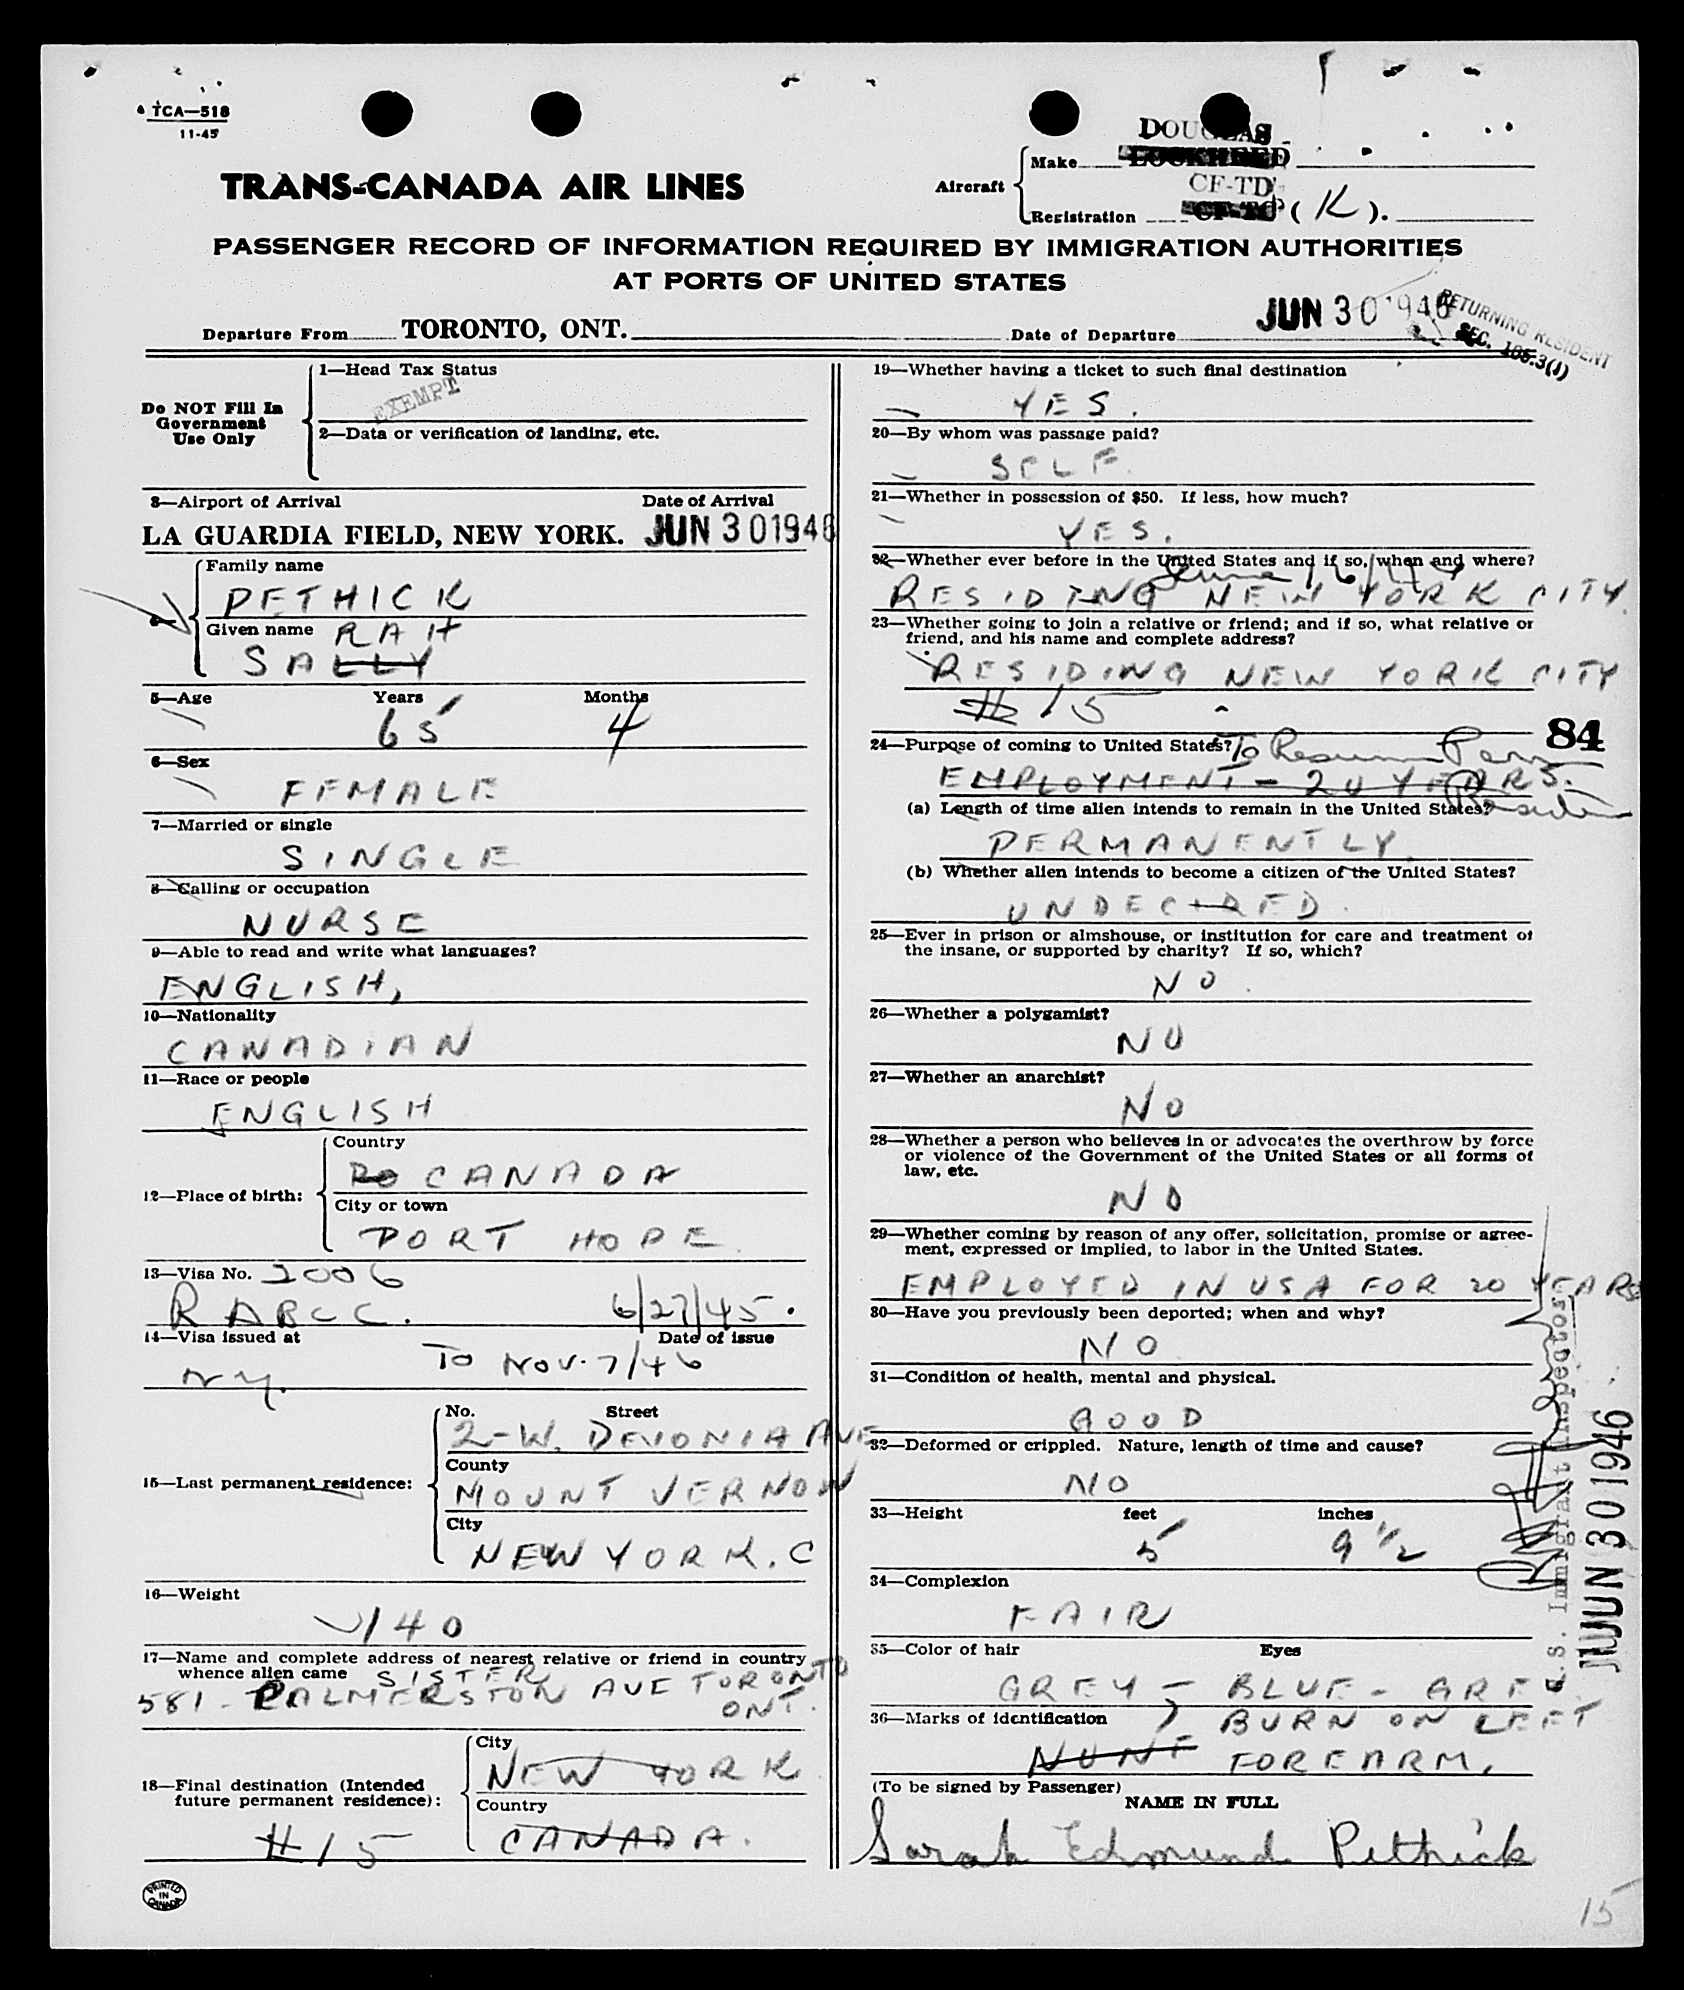 TCA—518
11-45
DOUGLAS
TRANS-CANADA AIR LINES
Aircraft
Make LOCKHEED
CF-TD
Registration CF-TC (K).
PASSENGER RECORD OF INFORMATION REQUIRED BY IMMIGRATION AUTHORITIES
AT PORTS OF UNITED STATES
Departure From TORONTO, ONT.
Date of Departure JUN 30 1946
RETURNING RESIDENT
SEC. 105.3(1)
Do NOT Fill In
Government
Use Only
1—Head Tax Status
EXEMPT
2—Data or verification of landing, etc.
3—Airport of Arrival Date of Arrival
LA GUARDIA FIELD, NEW YORK. JUN 30 1946
Family name
PETHICK
Given name RAH
SALLY
5—Age Years Months
65 4
6—Sex
FEMALE
7—Married or single
SINGLE
8—Calling or occupation
NURSE
9—Able to read and write what languages?
ENGLISH,
10—Nationality
CANADIAN
11—Race or people
ENGLISH
12—Place of birth:
Country
CANADA
City or town
PORT HOPE
13—Visa No. 2006
R ABCC. 6/27/45.
14—Visa issued at Date of issue
NY. TO NOV. 7/46
15—Last permanent residence:
No. Street
2-W. DEVONIA AVE
County
MOUNT VERNON
City
NEW YORK. C
16—Weight
140
17—Name and complete address of nearest relative or friend in country
whence alien came SISTER
581 - PALMERSTON AVE TORONTO
ONT.
18—Final destination (Intended
future permanent residence):
City
NEW YORK
Country
CANADA.
# 15
PRINTED
IN
CANADA
19—Whether having a ticket to such final destination
YES.
20—By whom was passage paid?
SELF.
21—Whether in possession of $50. If less, how much?
YES.
22—Whether ever before in the United States and if so, when and where?
June
RESIDING NEW YORK CITY.
23—Whether going to join a relative or friend; and if so, what relative or
friend, and his name and complete address?
RESIDING NEW YORK CITY
# 15
84
24—Purpose of coming to United States? To Resume Perm
EMPLOYMENT - 20 YEARS.
(a) Length of time alien intends to remain in the United States?
PERMANENTLY.
(b) Whether alien intends to become a citizen of the United States?
UNDECIRED.
25—Ever in prison or almshouse, or institution for care and treatment of
the insane, or supported by charity? If so, which?
NO.
26—Whether a polygamist?
NO
27—Whether an anarchist?
NO
28—Whether a person who believes in or advocates the overthrow by force
or violence of the Government of the United States or all forms of
law, etc.
NO
29—Whether coming by reason of any offer, solicitation, promise or agree-
ment, expressed or implied, to labor in the United States.
EMPLOYED IN USA FOR 20 YEARS
30—Have you previously been deported; when and why?
NO
31—Condition of health, mental and physical.
GOOD
32—Deformed or crippled. Nature, length of time and cause?
NO
33—Height feet inches
5 9 1/2
34—Complexion
FAIR
35—Color of hair Eyes
GREY - BLUE - GREY
36—Marks of identification BURN ON LEFT
NONE FOREARM.
(To be signed by Passenger)
NAME IN FULL
Sarah Edmund Pethick
U.S. Immigrant Inspector
JUN 30 1946
15